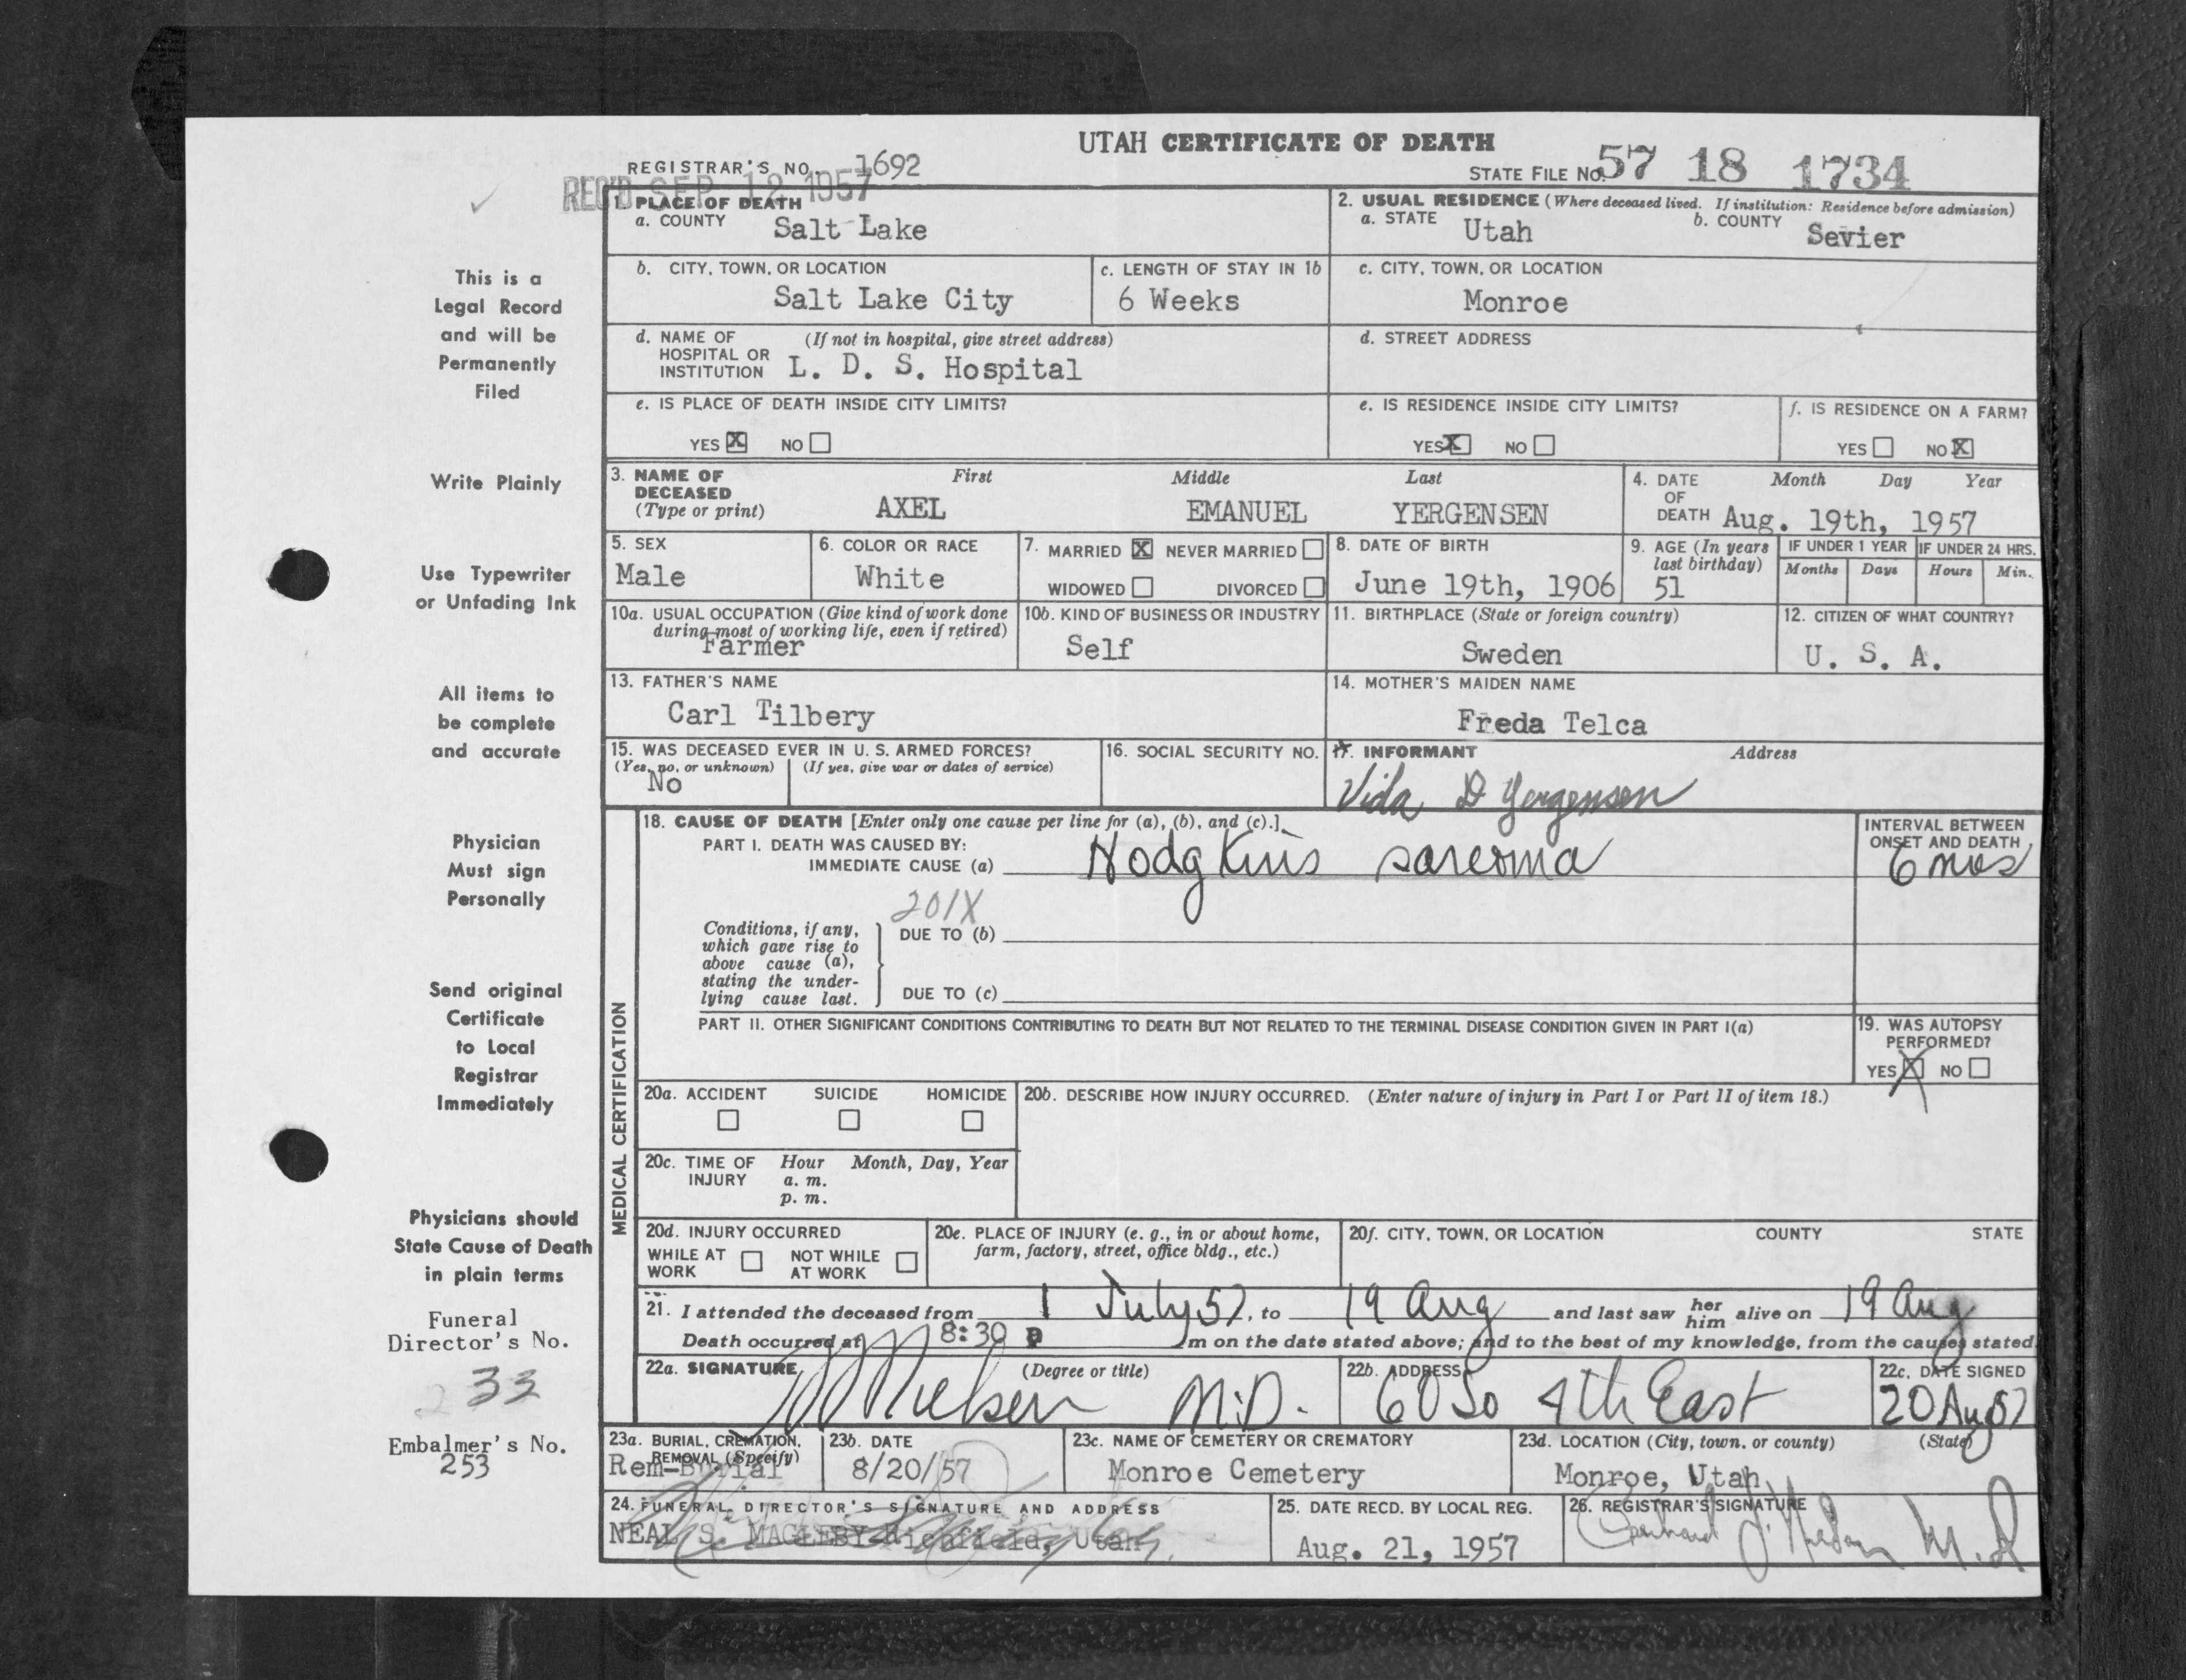 UTAH CERTIFICATE OF DEATH
REGISTRAR'S NO. 1692
STATE FILE NO. 57 18 1734
REC'D SEP 12 1957
1. PLACE OF DEATH
a. COUNTY Salt Lake
2. USUAL RESIDENCE (Where deceased lived. If institution: Residence before admission)
a. STATE Utah b. COUNTY Sevier
b. CITY, TOWN, OR LOCATION Salt Lake City
c. LENGTH OF STAY IN 1b 6 Weeks
c. CITY, TOWN, OR LOCATION Monroe
d. NAME OF HOSPITAL OR INSTITUTION (If not in hospital, give street address) L. D. S. Hospital
d. STREET ADDRESS
e. IS PLACE OF DEATH INSIDE CITY LIMITS?
YES X NO
e. IS RESIDENCE INSIDE CITY LIMITS?
YES X NO
f. IS RESIDENCE ON A FARM?
YES NO X
3. NAME OF DECEASED (Type or print) First Middle Last
AXEL EMANUEL YERGENSEN
4. DATE OF DEATH Month Day Year
Aug. 19th, 1957
5. SEX Male
6. COLOR OR RACE White
7. MARRIED X NEVER MARRIED
WIDOWED DIVORCED
8. DATE OF BIRTH June 19th, 1906
9. AGE (In years last birthday) 51
IF UNDER 1 YEAR Months Days
IF UNDER 24 HRS. Hours Min.
10a. USUAL OCCUPATION (Give kind of work done during most of working life, even if retired) Farmer
10b. KIND OF BUSINESS OR INDUSTRY Self
11. BIRTHPLACE (State or foreign country) Sweden
12. CITIZEN OF WHAT COUNTRY? U. S. A.
13. FATHER'S NAME Carl Tilbery
14. MOTHER'S MAIDEN NAME Freda Telca
15. WAS DECEASED EVER IN U. S. ARMED FORCES?
(Yes, no, or unknown) No (If yes, give war or dates of service)
16. SOCIAL SECURITY NO.
17. INFORMANT Address
Vida D Yergensen
MEDICAL CERTIFICATION
18. CAUSE OF DEATH [Enter only one cause per line for (a), (b), and (c).]
PART I. DEATH WAS CAUSED BY:
IMMEDIATE CAUSE (a) Hodgkins sarcoma
INTERVAL BETWEEN ONSET AND DEATH
6 mos
201X
Conditions, if any, which gave rise to above cause (a), stating the underlying cause last.
DUE TO (b)
DUE TO (c)
PART II. OTHER SIGNIFICANT CONDITIONS CONTRIBUTING TO DEATH BUT NOT RELATED TO THE TERMINAL DISEASE CONDITION GIVEN IN PART I(a)
19. WAS AUTOPSY PERFORMED?
YES X NO
20a. ACCIDENT SUICIDE HOMICIDE
20b. DESCRIBE HOW INJURY OCCURRED. (Enter nature of injury in Part I or Part II of item 18.)
20c. TIME OF INJURY Hour Month, Day, Year
a. m.
p. m.
20d. INJURY OCCURRED
WHILE AT WORK NOT WHILE AT WORK
20e. PLACE OF INJURY (e. g., in or about home, farm, factory, street, office bldg., etc.)
20f. CITY, TOWN, OR LOCATION COUNTY STATE
21. I attended the deceased from 1 July 57, to 19 Aug and last saw her him alive on 19 Aug
Death occurred at 8:30 p m on the date stated above; and to the best of my knowledge, from the causes stated.
22a. SIGNATURE (Degree or title)
Nielsen M.D.
22b. ADDRESS 60 So 4th East
22c. DATE SIGNED 20 Aug 57
23a. BURIAL, CREMATION, REMOVAL (Specify) Rem-Burial
23b. DATE 8/20/57
23c. NAME OF CEMETERY OR CREMATORY Monroe Cemetery
23d. LOCATION (City, town, or county) (State) Monroe, Utah
24. FUNERAL DIRECTOR'S SIGNATURE AND ADDRESS
NEAL S. MAGLEBY Richfield, Utah
25. DATE RECD. BY LOCAL REG. Aug. 21, 1957
26. REGISTRAR'S SIGNATURE
M.D.
This is a
Legal Record
and will be
Permanently
Filed
Write Plainly
Use Typewriter
or Unfading Ink
All items to
be complete
and accurate
Physician
Must sign
Personally
Send original
Certificate
to Local
Registrar
Immediately
Physicians should
State Cause of Death
in plain terms
Funeral
Director's No.
233
Embalmer's No.
253